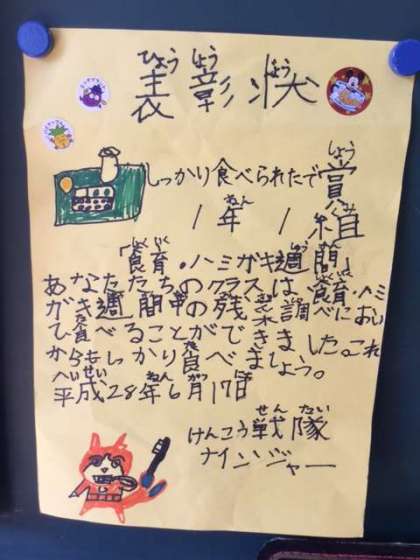 ひょう しょう じょう
表彰状
しょう
しっかり食べられたで賞
ねん
1年1組
「食育・ハミガキ週間」
あなたたちのクラスは、食育・ハミ
ガキ週間中の残菜調べにおい
て食べることができました。これ
からもしっかり食べましょう。
へいせい ねん がつ にち
平成28年6月17日
せん たい
けんこう戦隊
ナインジャー